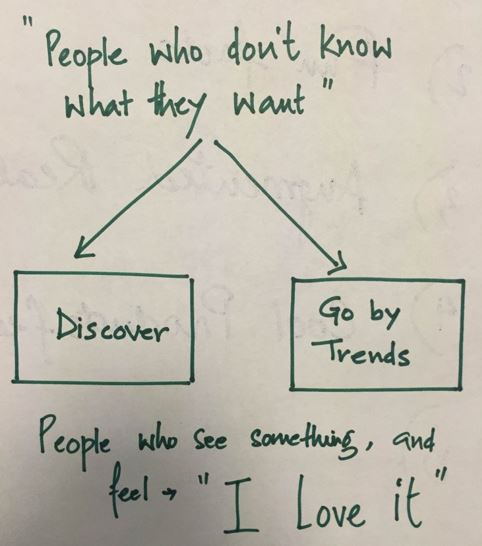 "People who don't know
what they want"
Discover
Go by
Trends
People who see something, and
feel → "I Love it"